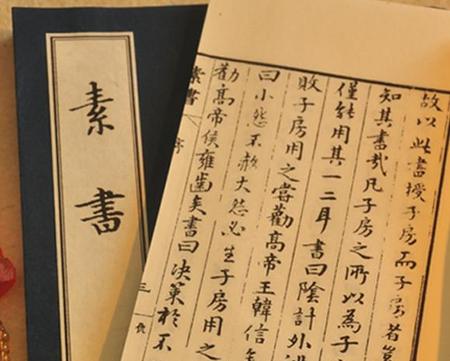 素書
故以此書授子房而子房者豈
知其書哉凡子房之所以為子
僅能用其一二耳書曰陰計外
敗子房用之嘗勸高帝王韓信
曰小怨不赦大怨必生子房用之
勸高帝侯雍齒矣書曰決策於不
素書 序 三